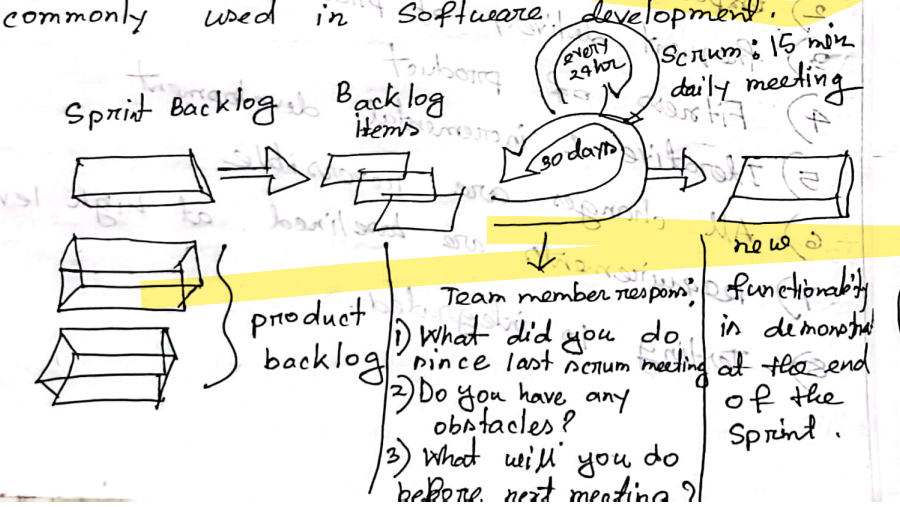 commonly used in Software development.
every
24hr
Scrum: 15 min
daily meeting
Sprint Backlog
Backlog
items
30 days
product
backlog
Team member respons;
1) What did you do
since last scrum meeting
2) Do you have any
obstacles?
3) What will you do
before next meeting?
new
functionality
is demonstrat
at the end
of the
Sprint.